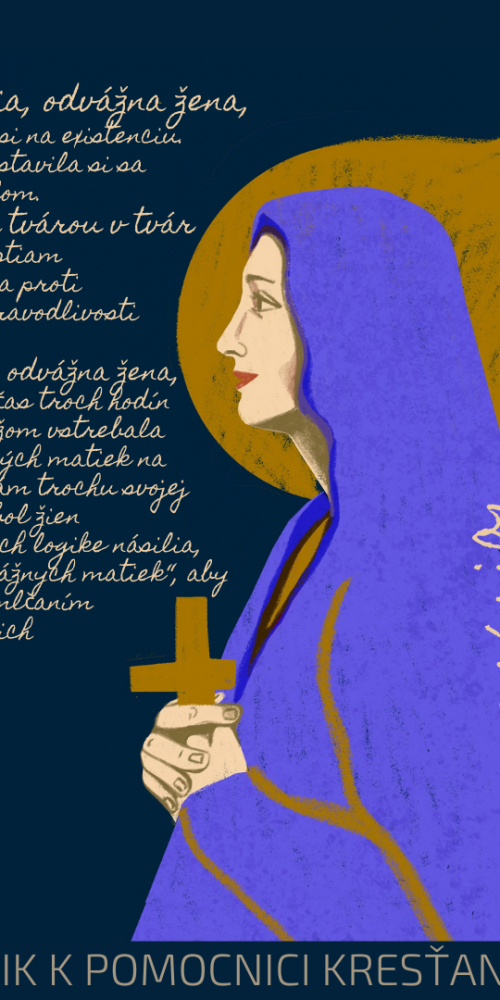 ia, odvážna žena,
si na existenciu.
stavila si sa
om.
tvárou v tvár
stiam
a proti
ravodlivosti
odvážna žena,
čas troch hodín
žom vstrebala
ých matiek na
ám trochu svojej
bol žien
ch logike násilia,
ážnych matiek“, aby
mlčaním
ich
IK K POMOCNICI KRESŤAN